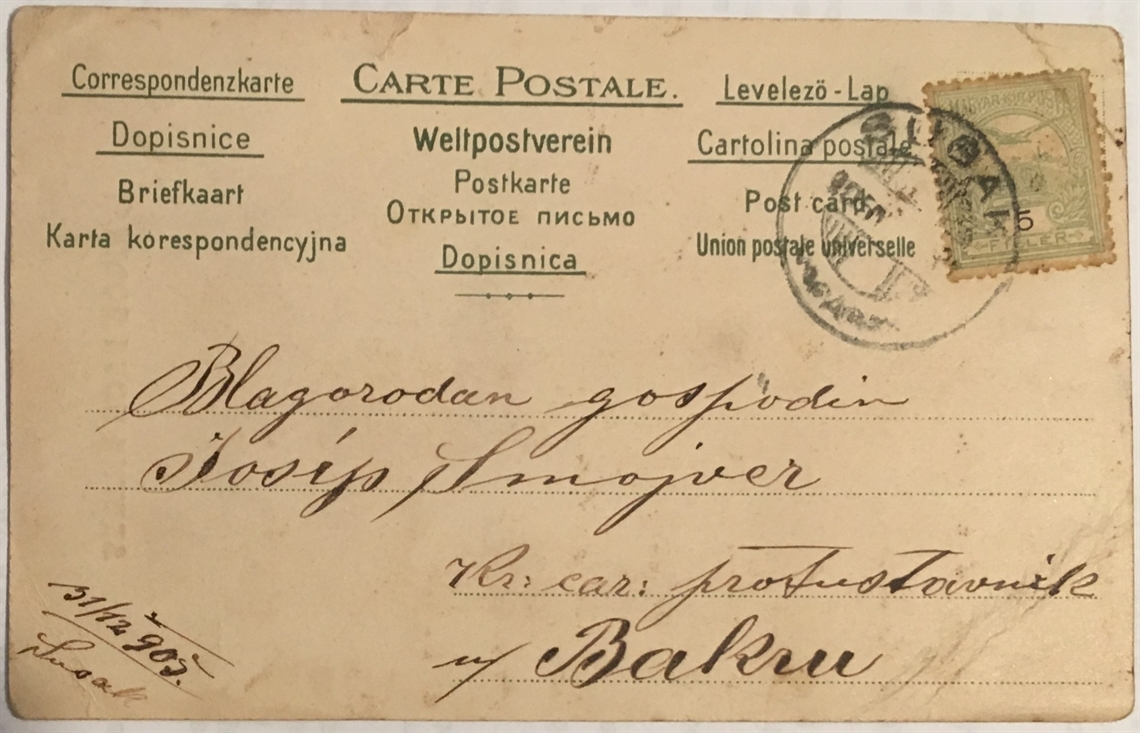 Correspondenzkarte
Dopisnice
Briefkaart
Karta korespondencyjna
CARTE POSTALE.
Weltpostverein
Postkarte
ОТКРЫТОЕ ПИСЬМО
Dopisnica
Levelező-Lap
Cartolina postale
Post card
Union postale universelle
MAGYAR KIR. POSTA
5
FILLÉR
Blagorodan gospodin
Josip Smojver
Kr: car: protustavnik
u/ Bakru
31/12 905.
Sušak